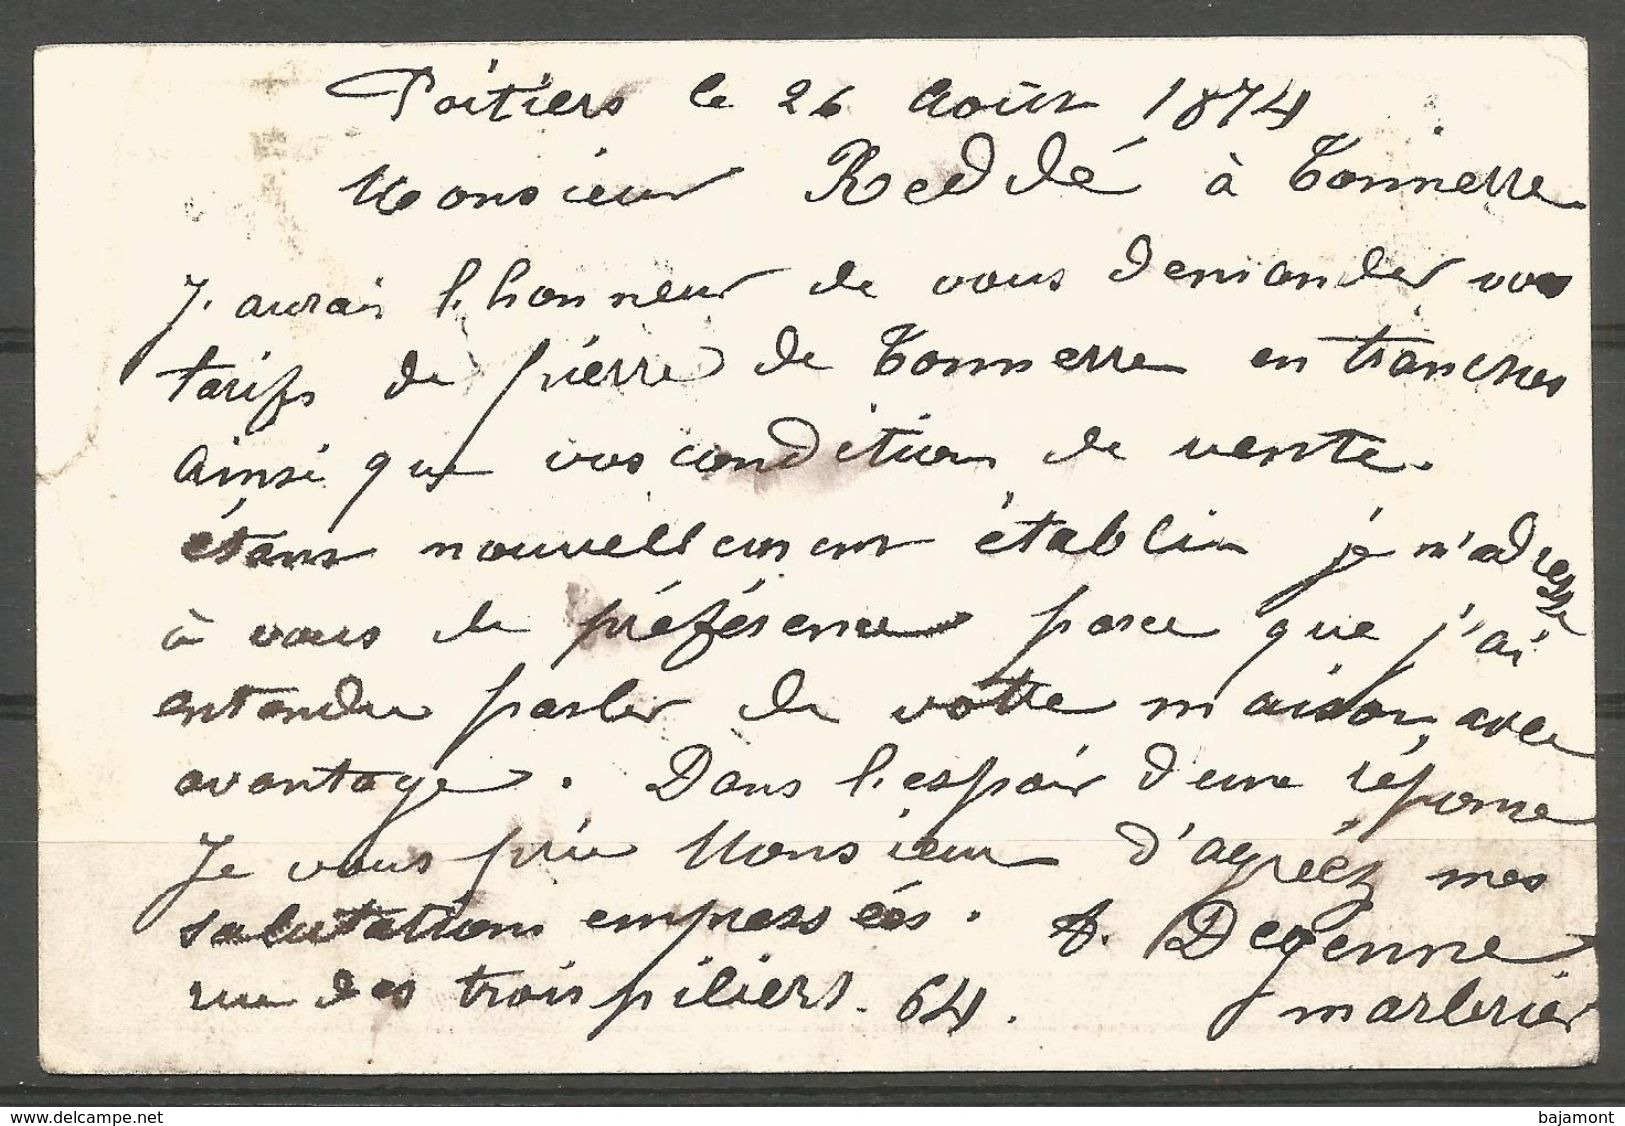 Poitiers le 26 Août 1874
Monsieur Reddé à Tonnerre
J'aurais l'honneur de vous demander vos
tarifs de pierre de Tonnerre en tranches
ainsi que vos condition de vente.
étant nouvellement établie je m'adresse
à vous de préférence parce que j'ai
entendu parler de votre maison, avec
avantage. Dans l'espoir d'une réponse
Je vous prie Monsieur d'agréez mes
salutations empressées. A. Degenne
rue des trois piliers. 64. marbrier
www.delcampe.net
bajamont